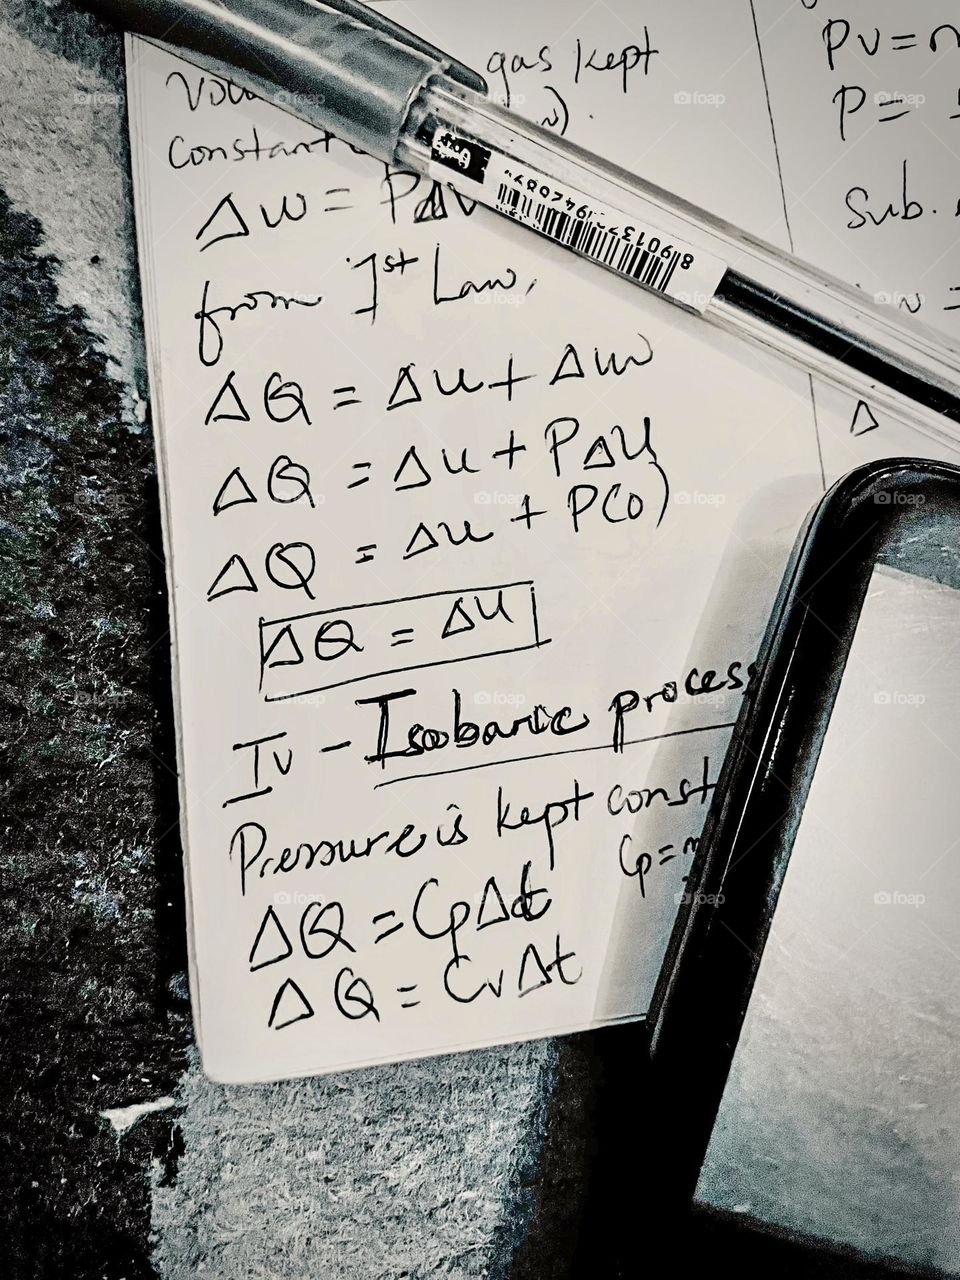 gas kept
Constant
Δw = PΔv
from 1st Law,
ΔQ = Δu + Δw
ΔQ = Δu + PΔU
ΔQ = Δu + P(0)
ΔQ = Δu
IV - Isobaric process
Pressure is kept const
Cp =
ΔQ = CpΔt
ΔQ = CvΔt
PV =
P =
Sub.
Δ
foap